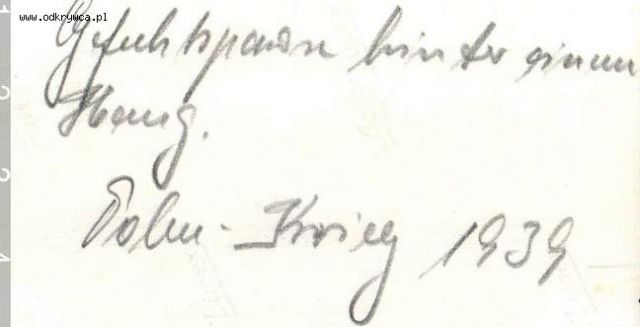 www.odkrywca.pl
Gefechtspause hinter einem
Hang.
Polen-Krieg 1939